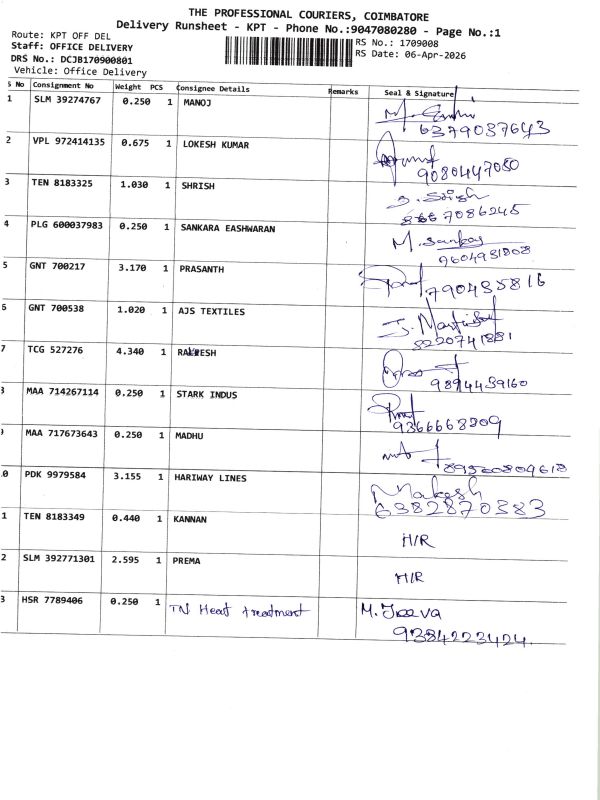 THE PROFESSIONAL COURIERS, COIMBATORE
Delivery Runsheet - KPT - Phone No.:9047080280 - Page No.:1
Route: KPT OFF DEL
Staff: OFFICE DELIVERY
DRS No.: DCJB170900801
Vehicle: Office Delivery
RS No.: 1709008
RS Date: 06-Apr-2026
S No Consignment No Weight PCS Consignee Details Remarks Seal & Signature
1 SLM 39274767 0.250 1 MANOJ
6379037643
2 VPL 972414135 0.675 1 LOKESH KUMAR
9080447050
3 TEN 8183325 1.030 1 SHRISH
8667086245
4 PLG 600037983 0.250 1 SANKARA EASHWARAN
M. Sankar
9604931808
5 GNT 700217 3.170 1 PRASANTH
790435816
6 GNT 700538 1.020 1 AJS TEXTILES
8220741881
7 TCG 527276 4.340 1 RAKESH
9894439160
8 MAA 714267114 0.250 1 STARK INDUS
9366663809
9 MAA 717673643 0.250 1 MADHU
0 PDK 9979584 3.155 1 HARIWAY LINES
Makesh
6382870383
1 TEN 8183349 0.440 1 KANNAN
H/R
2 SLM 392771301 2.595 1 PREMA
H/R
3 HSR 7789406 0.250 1 TN Heat treatment M. Jeeva
9384223424